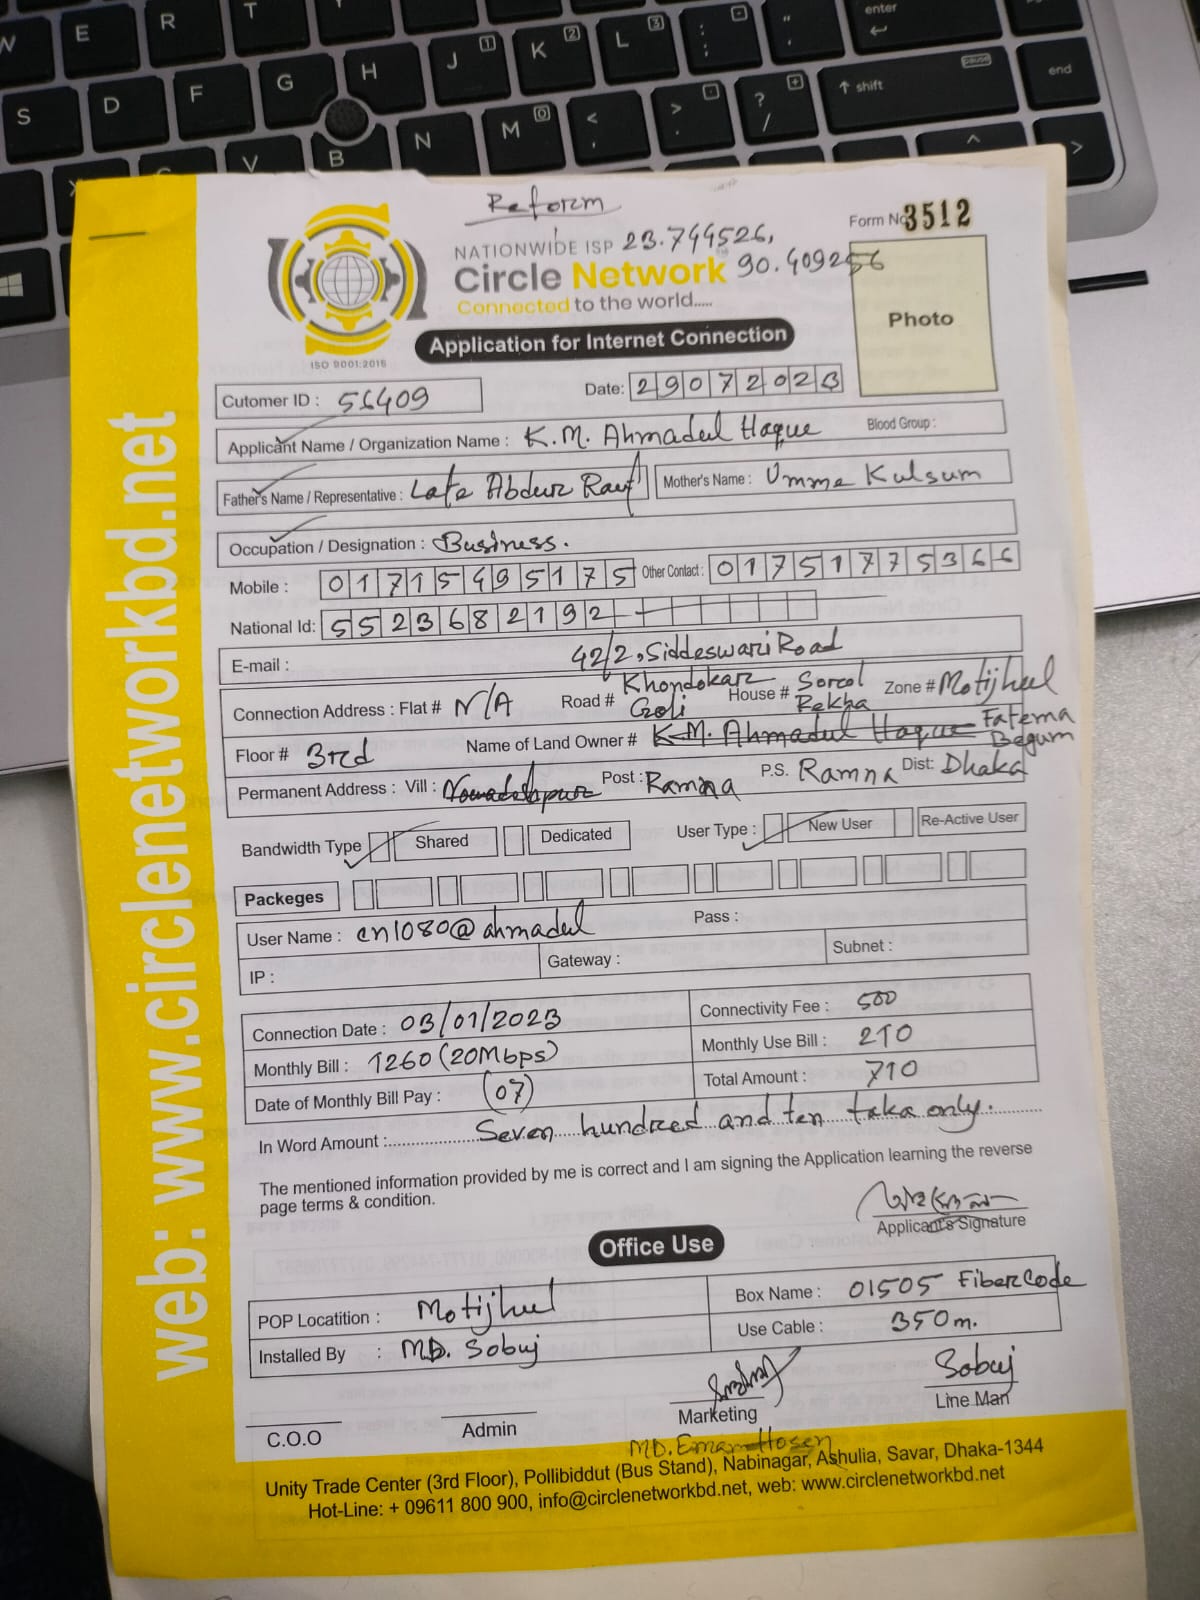 Reform
Form No 3512
NATIONWIDE ISP 23.744526,
Circle Network 90.409256
Connected to the world.....
ISO 9001:2015
Application for Internet Connection
Photo
Cutomer ID : 56409 Date: 29072023
Applicant Name / Organization Name : K.M. Ahmadul Haque Blood Group :
Father's Name / Representative : Late Abdur Rauf Mother's Name : Umme Kulsum
Occupation / Designation : Business.
Mobile : 01715495175 Other Contact : 01751775366
National Id: 5523682192
E-mail :
42/2, Siddeswari Road
Connection Address : Flat # N/A Road # Khondokar Goli House # Sorcol Rekha Zone # Motijheel
Floor # 3rd Name of Land Owner # K.M. Ahmadul Haque Fatema Begum
Permanent Address : Vill : Post : Ramna P.S. Ramna Dist: Dhaka
Bandwidth Type Shared Dedicated User Type : New User Re-Active User
Packeges
User Name : cn1080@ahmadul Pass :
IP : Gateway : Subnet :
Connection Date : 03/01/2023 Connectivity Fee : 500
Monthly Bill : 1260 (20Mbps) Monthly Use Bill : 210
Date of Monthly Bill Pay : (07) Total Amount : 710
In Word Amount : Seven hundred and ten taka only.
The mentioned information provided by me is correct and I am signing the Application learning the reverse
page terms & condition.
Applicant's Signature
Office Use
POP Locatition : Motijheel Box Name : 01505 Fiber Code
Installed By : MD. Sobuj Use Cable : 350m.
Sobuj
C.O.O Admin Marketing Line Man
MD. Emam Hosen
Unity Trade Center (3rd Floor), Pollibiddut (Bus Stand), Nabinagar, Ashulia, Savar, Dhaka-1344
Hot-Line: + 09611 800 900, info@circlenetworkbd.net, web: www.circlenetworkbd.net
web: www.circlenetworkbd.net